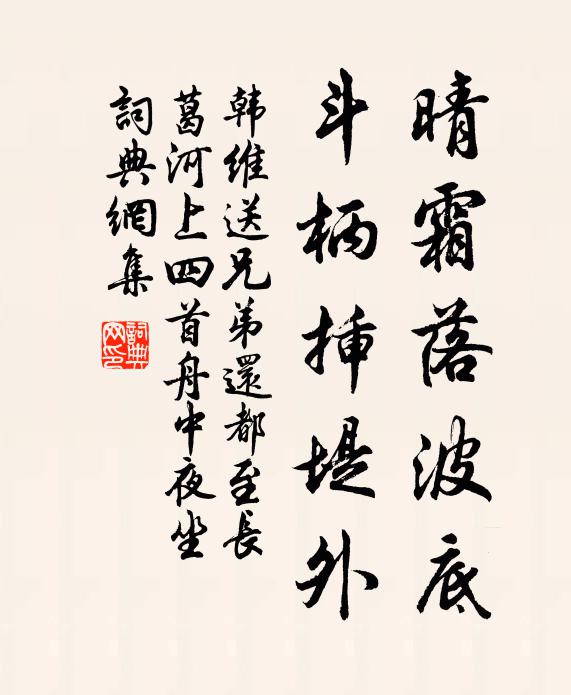 晴霜落波底
斗柄揷堤外
韩維送兄弟還都至長
葛河上四首舟中夜坐
詞典網集
詞典网印